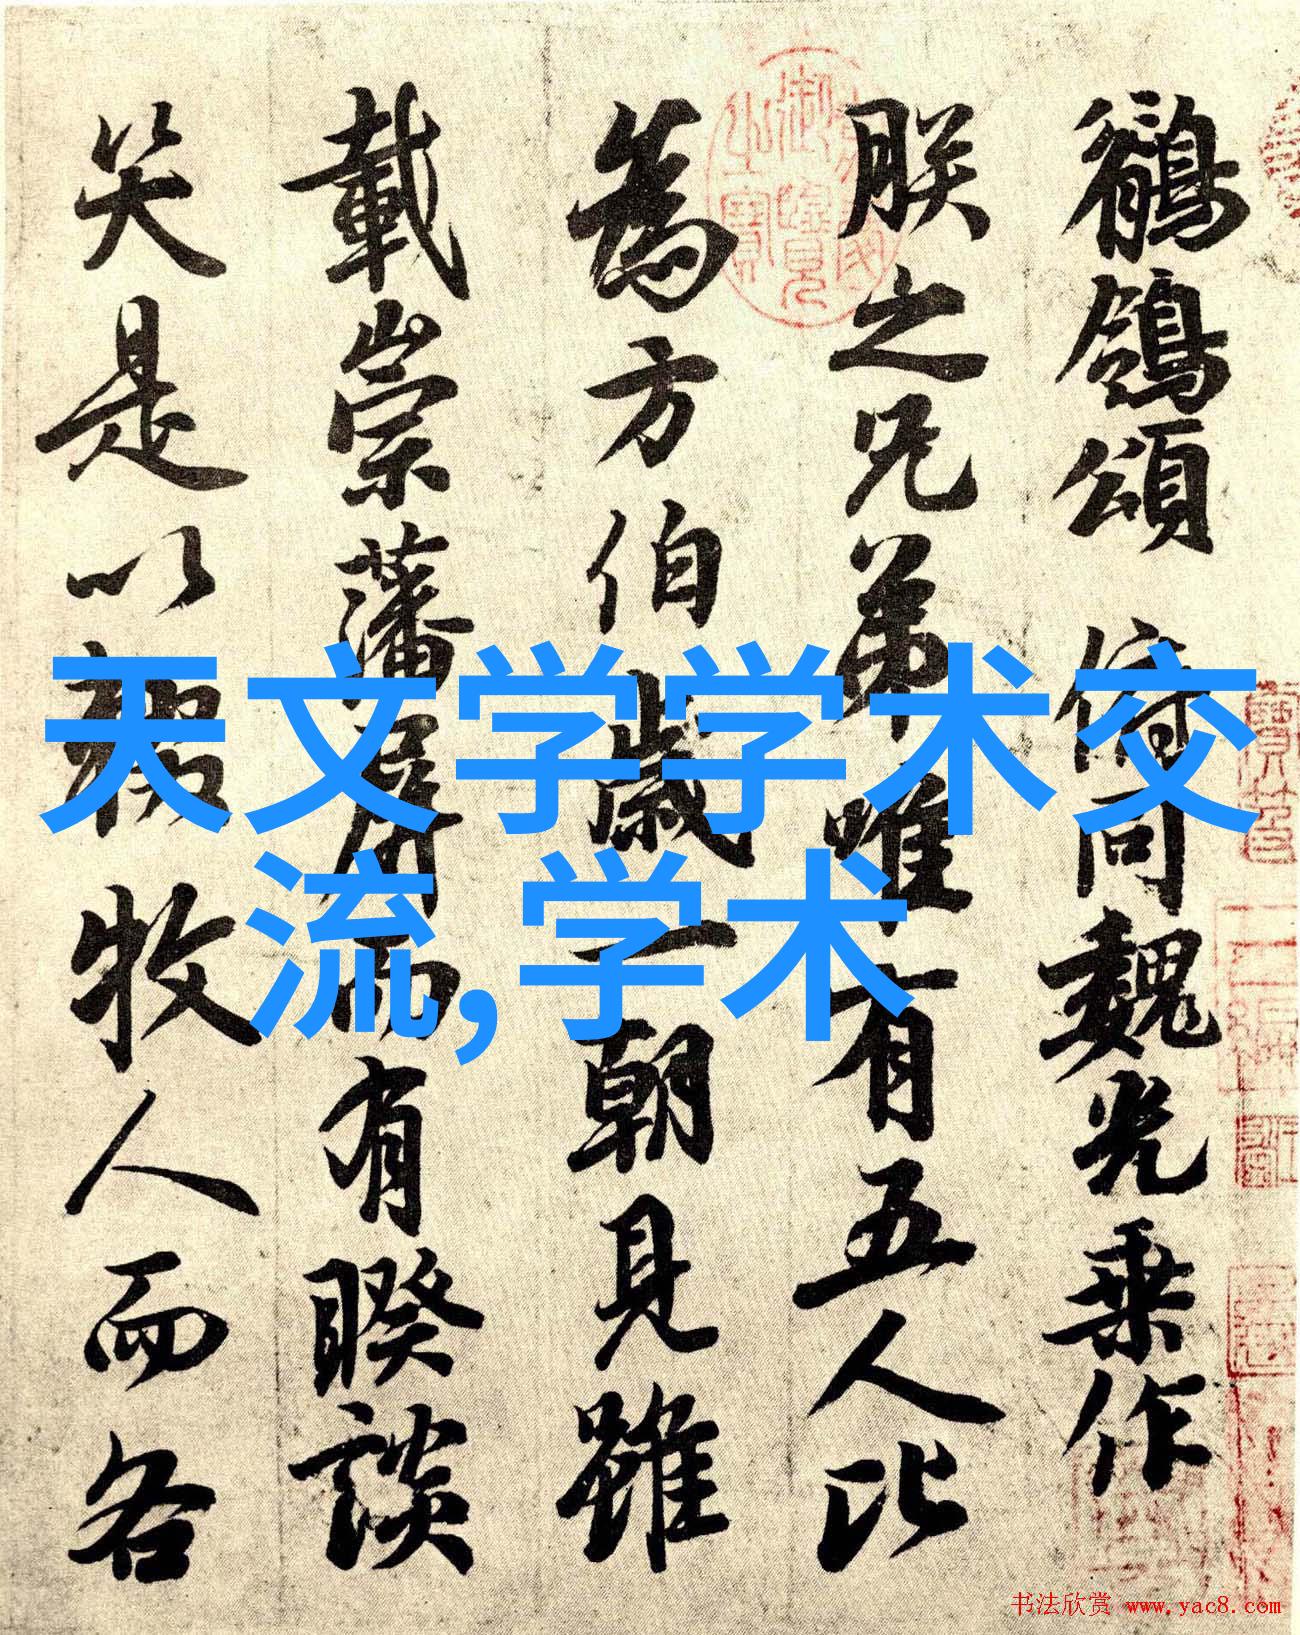 鶺鴒頌 俯同魏光乘作
朕之兄弟唯有五人比
為方伯歲一朝見雖
載崇藩屏而有暌談
笑是以輟牧人而各
天文学学术交
流,学术
书法欣赏 www.yac8.com